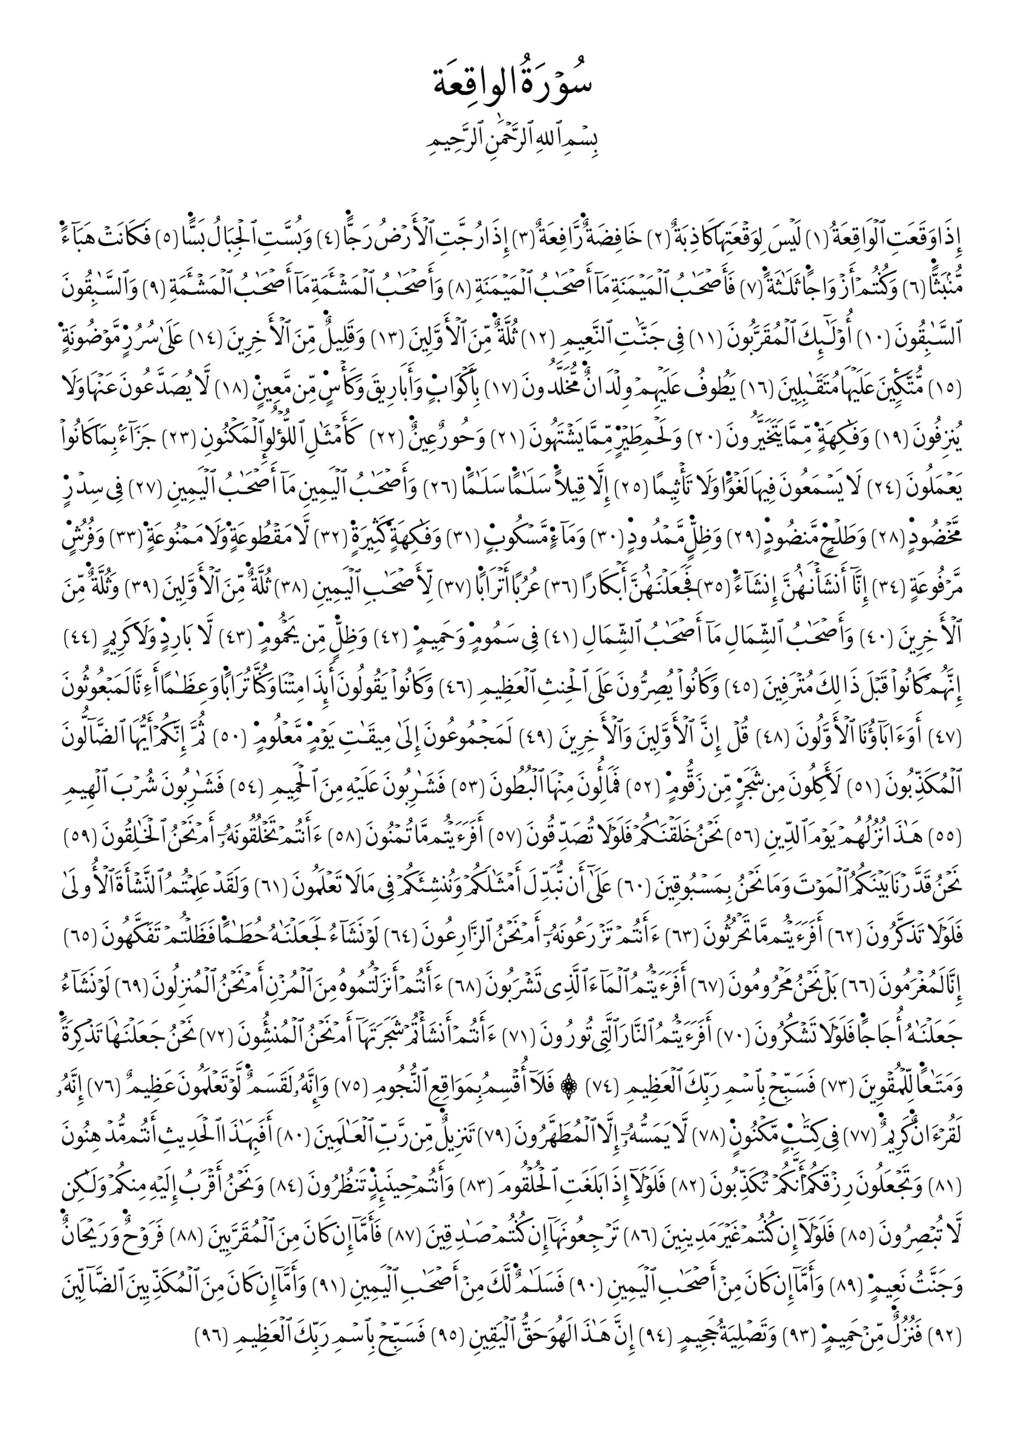 سُوْرَةُ الواقِعَة
بِسْمِ ٱللهِ ٱلرَّحْمَٰنِ ٱلرَّحِيمِ
إِذَا وَقَعَتِ ٱلْوَاقِعَةُ (١) لَيْسَ لِوَقْعَتِهَا كَاذِبَةٌ (٢) خَافِضَةٌ رَّافِعَةٌ (٣) إِذَا رُجَّتِ ٱلْأَرْضُ رَجًّا (٤) وَبُسَّتِ ٱلْجِبَالُ بَسًّا (٥) فَكَانَتْ هَبَآءً
مُّنْبَثًّا (٦) وَكُنْتُمْ أَزْوَاجًا ثَلَٰثَةً (٧) فَأَصْحَٰبُ ٱلْمَيْمَنَةِ مَآ أَصْحَٰبُ ٱلْمَيْمَنَةِ (٨) وَأَصْحَٰبُ ٱلْمَشْـَٔمَةِ مَآ أَصْحَٰبُ ٱلْمَشْـَٔمَةِ (٩) وَٱلسَّٰبِقُونَ
ٱلسَّٰبِقُونَ (١٠) أُوْلَٰٓئِكَ ٱلْمُقَرَّبُونَ (١١) فِى جَنَّٰتِ ٱلنَّعِيمِ (١٢) ثُلَّةٌ مِّنَ ٱلْأَوَّلِينَ (١٣) وَقَلِيلٌ مِّنَ ٱلْأَخِرِينَ (١٤) عَلَىٰ سُرُرٍ مَّوْضُونَةٍ
(١٥) مُّتَّكِـِٔينَ عَلَيْهَا مُتَقَٰبِلِينَ (١٦) يَطُوفُ عَلَيْهِمْ وِلْدَانٌ مُّخَلَّدُونَ (١٧) بِأَكْوَابٍ وَأَبَارِيقَ وَكَأْسٍ مِّن مَّعِينٍ (١٨) لَّا يُصَدَّعُونَ عَنْهَا وَلَا
يُنزِفُونَ (١٩) وَفَٰكِهَةٍ مِّمَّا يَتَخَيَّرُونَ (٢٠) وَلَحْمِ طَيْرٍ مِّمَّا يَشْتَهُونَ (٢١) وَحُورٌ عِينٌ (٢٢) كَأَمْثَٰلِ ٱللُّؤْلُؤِ ٱلْمَكْنُونِ (٢٣) جَزَآءً بِمَا كَانُوا۟
يَعْمَلُونَ (٢٤) لَا يَسْمَعُونَ فِيهَا لَغْوًا وَلَا تَأْثِيمًا (٢٥) إِلَّا قِيلًا سَلَٰمًا سَلَٰمًا (٢٦) وَأَصْحَٰبُ ٱلْيَمِينِ مَآ أَصْحَٰبُ ٱلْيَمِينِ (٢٧) فِى سِدْرٍ
مَّخْضُودٍ (٢٨) وَطَلْحٍ مَّنضُودٍ (٢٩) وَظِلٍّ مَّمْدُودٍ (٣٠) وَمَآءٍ مَّسْكُوبٍ (٣١) وَفَٰكِهَةٍ كَثِيرَةٍ (٣٢) لَّا مَقْطُوعَةٍ وَلَا مَمْنُوعَةٍ (٣٣) وَفُرُشٍ
مَّرْفُوعَةٍ (٣٤) إِنَّآ أَنشَأْنَٰهُنَّ إِنشَآءً (٣٥) فَجَعَلْنَٰهُنَّ أَبْكَارًا (٣٦) عُرُبًا أَتْرَابًا (٣٧) لِّأَصْحَٰبِ ٱلْيَمِينِ (٣٨) ثُلَّةٌ مِّنَ ٱلْأَوَّلِينَ (٣٩) وَثُلَّةٌ مِّنَ
ٱلْأَخِرِينَ (٤٠) وَأَصْحَٰبُ ٱلشِّمَالِ مَآ أَصْحَٰبُ ٱلشِّمَالِ (٤١) فِى سَمُومٍ وَحَمِيمٍ (٤٢) وَظِلٍّ مِّن يَحْمُومٍ (٤٣) لَّا بَارِدٍ وَلَا كَرِيمٍ (٤٤)
إِنَّهُمْ كَانُوا۟ قَبْلَ ذَٰلِكَ مُتْرَفِينَ (٤٥) وَكَانُوا۟ يُصِرُّونَ عَلَى ٱلْحِنثِ ٱلْعَظِيمِ (٤٦) وَكَانُوا۟ يَقُولُونَ أَئِذَا مِتْنَا وَكُنَّا تُرَابًا وَعِظَٰمًا أَءِنَّا لَمَبْعُوثُونَ
(٤٧) أَوَءَابَآؤُنَا ٱلْأَوَّلُونَ (٤٨) قُلْ إِنَّ ٱلْأَوَّلِينَ وَٱلْأَخِرِينَ (٤٩) لَمَجْمُوعُونَ إِلَىٰ مِيقَٰتِ يَوْمٍ مَّعْلُومٍ (٥٠) ثُمَّ إِنَّكُمْ أَيُّهَا ٱلضَّآلُّونَ
ٱلْمُكَذِّبُونَ (٥١) لَأَكِلُونَ مِن شَجَرٍ مِّن زَقُّومٍ (٥٢) فَمَالِـُٔونَ مِنْهَا ٱلْبُطُونَ (٥٣) فَشَٰرِبُونَ عَلَيْهِ مِنَ ٱلْحَمِيمِ (٥٤) فَشَٰرِبُونَ شُرْبَ ٱلْهِيمِ
(٥٥) هَٰذَا نُزُلُهُمْ يَوْمَ ٱلدِّينِ (٥٦) نَحْنُ خَلَقْنَٰكُمْ فَلَوْلَا تُصَدِّقُونَ (٥٧) أَفَرَءَيْتُم مَّا تُمْنُونَ (٥٨) ءَأَنتُمْ تَخْلُقُونَهُۥٓ أَمْ نَحْنُ ٱلْخَٰلِقُونَ (٥٩)
نَحْنُ قَدَّرْنَا بَيْنَكُمُ ٱلْمَوْتَ وَمَا نَحْنُ بِمَسْبُوقِينَ (٦٠) عَلَىٰٓ أَن نُّبَدِّلَ أَمْثَٰلَكُمْ وَنُنشِئَكُمْ فِى مَا لَا تَعْلَمُونَ (٦١) وَلَقَدْ عَلِمْتُمُ ٱلنَّشْأَةَ ٱلْأُولَىٰ
فَلَوْلَا تَذَكَّرُونَ (٦٢) أَفَرَءَيْتُم مَّا تَحْرُثُونَ (٦٣) ءَأَنتُمْ تَزْرَعُونَهُۥٓ أَمْ نَحْنُ ٱلزَّٰرِعُونَ (٦٤) لَوْ نَشَآءُ لَجَعَلْنَٰهُ حُطَٰمًا فَظَلْتُمْ تَفَكَّهُونَ (٦٥)
إِنَّا لَمُغْرَمُونَ (٦٦) بَلْ نَحْنُ مَحْرُومُونَ (٦٧) أَفَرَءَيْتُمُ ٱلْمَآءَ ٱلَّذِى تَشْرَبُونَ (٦٨) ءَأَنتُمْ أَنزَلْتُمُوهُ مِنَ ٱلْمُزْنِ أَمْ نَحْنُ ٱلْمُنزِلُونَ (٦٩) لَوْ نَشَآءُ
جَعَلْنَٰهُ أُجَاجًا فَلَوْلَا تَشْكُرُونَ (٧٠) أَفَرَءَيْتُمُ ٱلنَّارَ ٱلَّتِى تُورُونَ (٧١) ءَأَنتُمْ أَنشَأْتُمْ شَجَرَتَهَآ أَمْ نَحْنُ ٱلْمُنشِـُٔونَ (٧٢) نَحْنُ جَعَلْنَٰهَا تَذْكِرَةً
وَمَتَٰعًا لِّلْمُقْوِينَ (٧٣) فَسَبِّحْ بِٱسْمِ رَبِّكَ ٱلْعَظِيمِ (٧٤) ۞ فَلَآ أُقْسِمُ بِمَوَٰقِعِ ٱلنُّجُومِ (٧٥) وَإِنَّهُۥ لَقَسَمٌ لَّوْ تَعْلَمُونَ عَظِيمٌ (٧٦) إِنَّهُۥ
لَقُرْءَانٌ كَرِيمٌ (٧٧) فِى كِتَٰبٍ مَّكْنُونٍ (٧٨) لَّا يَمَسُّهُۥٓ إِلَّا ٱلْمُطَهَّرُونَ (٧٩) تَنزِيلٌ مِّن رَّبِّ ٱلْعَٰلَمِينَ (٨٠) أَفَبِهَٰذَا ٱلْحَدِيثِ أَنتُم مُّدْهِنُونَ
(٨١) وَتَجْعَلُونَ رِزْقَكُمْ أَنَّكُمْ تُكَذِّبُونَ (٨٢) فَلَوْلَآ إِذَا بَلَغَتِ ٱلْحُلْقُومَ (٨٣) وَأَنتُمْ حِينَئِذٍ تَنظُرُونَ (٨٤) وَنَحْنُ أَقْرَبُ إِلَيْهِ مِنكُمْ وَلَٰكِن
لَّا تُبْصِرُونَ (٨٥) فَلَوْلَآ إِن كُنتُمْ غَيْرَ مَدِينِينَ (٨٦) تَرْجِعُونَهَآ إِن كُنتُمْ صَٰدِقِينَ (٨٧) فَأَمَّآ إِن كَانَ مِنَ ٱلْمُقَرَّبِينَ (٨٨) فَرَوْحٌ وَرَيْحَانٌ
وَجَنَّتُ نَعِيمٍ (٨٩) وَأَمَّآ إِن كَانَ مِنْ أَصْحَٰبِ ٱلْيَمِينِ (٩٠) فَسَلَٰمٌ لَّكَ مِنْ أَصْحَٰبِ ٱلْيَمِينِ (٩١) وَأَمَّآ إِن كَانَ مِنَ ٱلْمُكَذِّبِينَ ٱلضَّآلِّينَ
(٩٢) فَنُزُلٌ مِّنْ حَمِيمٍ (٩٣) وَتَصْلِيَةُ جَحِيمٍ (٩٤) إِنَّ هَٰذَا لَهُوَ حَقُّ ٱلْيَقِينِ (٩٥) فَسَبِّحْ بِٱسْمِ رَبِّكَ ٱلْعَظِيمِ (٩٦)